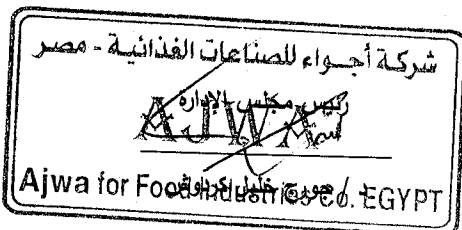 شركة أجواء للصناعات الغذائية - مصر
رئيس مجلس الإدارة
AJWA
Ajwa for Food Industries Co. EGYPT